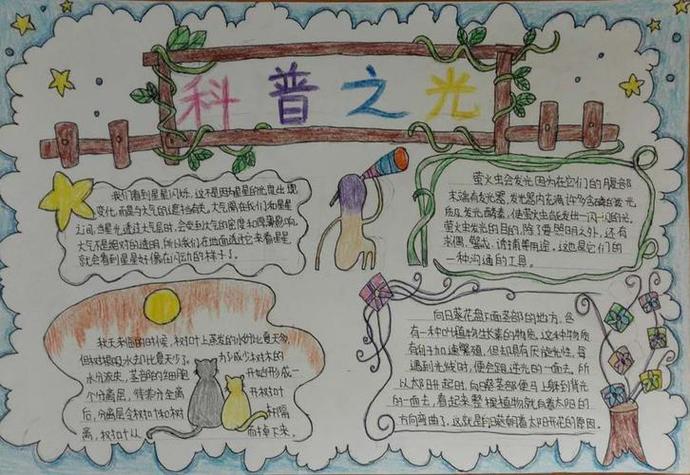 科普之光
我们看到星星闪烁,这不是因为星星的光度出现
变化,而是与大气的遮挡有关。大气隔在我们和星星
之间,当星光透过大气层时,会受到大气的密度和厚薄影响。
大气不是绝对的透明,所以我们在地面透过它来看星星,
就会看到星星好像在闪动的样子了。
萤火虫会发光,因为在它们的腹部
末端有发光器,发光器内充满许多含磷的发光
质及发光酵素,使萤火虫能发出一闪一闪的光。
萤火虫发光的目的,除了要照明之外,还有
求偶、警戒、诱捕等用途。这也是它们的
一种沟通的工具。
秋天来临的时候,树叶上蒸发的水份比夏天多,
但树根吸水却比夏天少了。为了减少树木的
水分流失,茎部的细胞 开始形成一
个分离层,等养分全离 开树叶
后,分离层令树叶和树 杆隔
离,树叶从 而掉下来。
向日葵花盘下面茎部的地方,含
有一种叫植物生长素的物质。这种物质
有叫加速繁殖,但却具有厌旋光性,每
遇到光线时,便会跑到逆光的一面去。所
以太阳升起时,向日葵茎部便马上躲到背光
的一面去,看起来整棵植物就向着太阳的
方向弯曲了。这就是向日葵朝着太阳开花的原因。